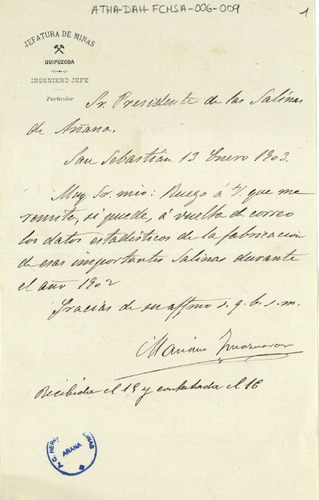 ATHA-DAH-FCHSA-006-009
1
JEFATURA DE MINAS
GUIPÚZCOA
INGENIERO JEFE
Particular
Sr. Presidente de las Salinas
de Añana.
San Sebastián 13 Enero 1903.
Muy Sr. mio: Ruego á V. que me
remita, si puede, á vuelta de correo
los datos estadísticos de la fabricación
de esas importantes Salinas durante
el año 1902
Gracias de su affmo s. q. b. s. m.
Mariano
Recibida el 15 y contestada el 16
AÑANA